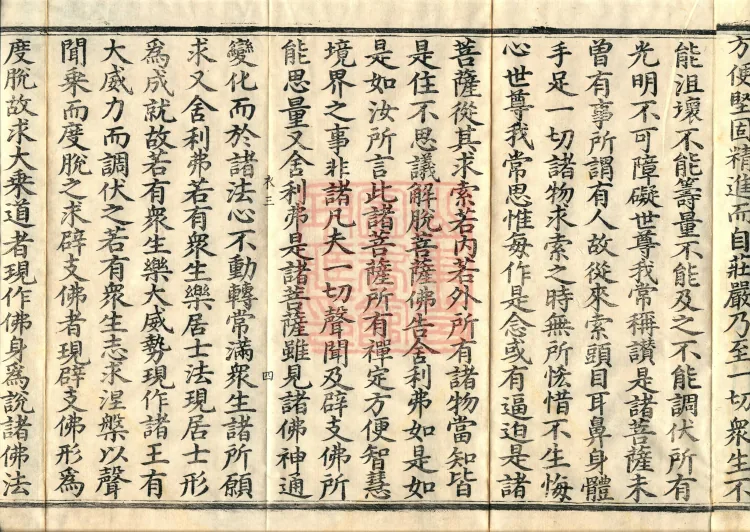 方便堅固精進而自莊嚴乃至一切衆生不
能沮壞不能籌量不能及之不能調伏所有
光明不可障礙世尊我常稱讚是諸菩薩未
曾有事所謂有人故從來索頭目耳鼻身體
手足一切諸物求索之時無所悋惜不生悔
心世尊我常思惟每作是念或有逼迫是諸
菩薩從其求索若內若外所有諸物當知皆
是住不思議解脫菩薩佛告舍利弗如是如
是如汝所言此諸菩薩所有禪定方便智慧
境界之事非諸凡夫一切聲聞及辟支佛所
能思量又舍利弗是諸菩薩雖見諸佛神通
衣三
四
變化而於諸法心不動轉常滿衆生諸所願
求又舍利弗若有衆生樂居士法現居士形
爲成就故若有衆生樂大威勢現作諸王有
大威力而調伏之若有衆生志求涅槃以聲
聞乘而度脫之求辟支佛者現辟支佛形爲
度脫故求大乘道者現作佛身爲說諸佛法